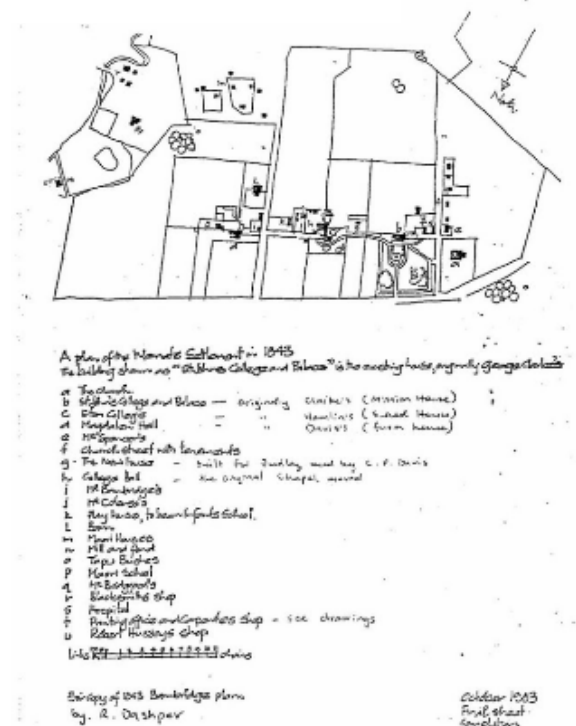 North
A plan of the Waimate Settlement in 1843
The building shown as "St. Johns College and Palace" is the existing house, originally George Clarke's
a The Church
b St Johns College and Palace — originally Clarke's (Mission House)
c Eton College — " Hamlin's (School House)
d Magdalen Hall — " Davis's (Farm house)
e Mr Spencer's
f Church Street with tenements
g The New house — built for Dudley used by C. P. Davis
h College Hall — the original Chapel, moved
i Mr Bambridge's
j Mr Colenso's
k Play house, to be an Infants School.
l Barn
m Maori Houses
n Mill and pond
o Tapu Bushes
p Maori School
q Mr
r Blacksmiths shop
s Hospital
t Printing office and Carpenters Shop - see drawings
u Robert Hussays shop
links chains
copy of 1843 Bambridge plan
by. R. Dashper
October 1983
Final sheet